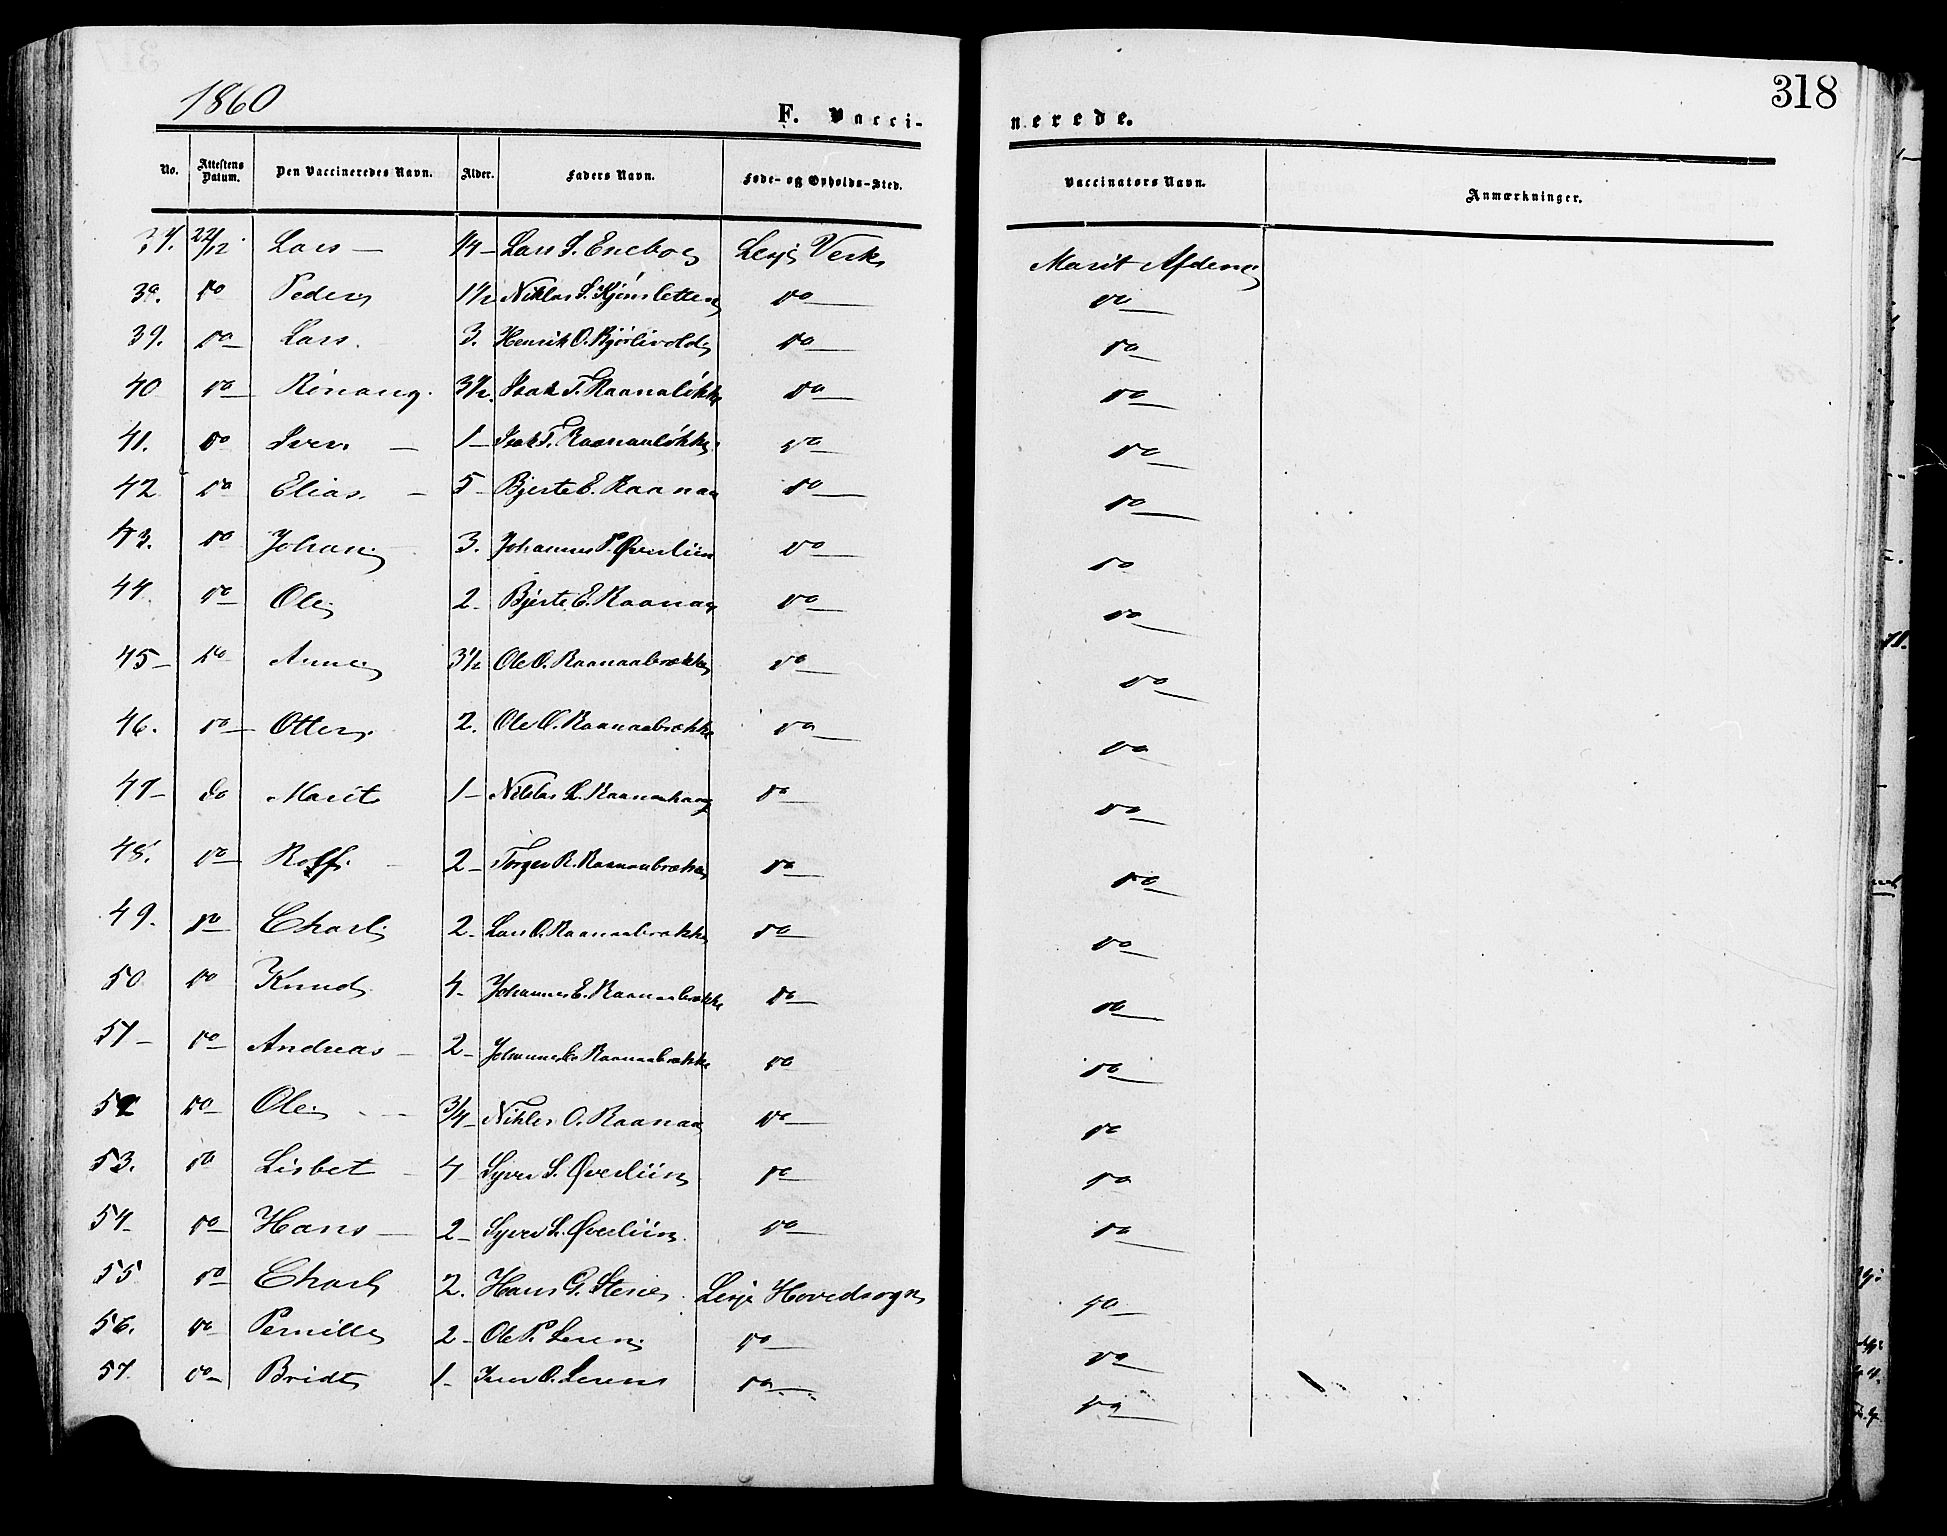 1860
F. Vacci-
nerede.
318
No. Attestens Datum. Den Vaccineredes Navn. Alder. Faders Navn. Føde- og Opholds-Sted. Vaccinators Navn. Anmærkninger.
37. 22/12 Lars — 1/4 — Lars Enebog Lesje Verks Marit
38. do Peder 1 1/2 Niklas S. do — do —
39. do — Lars. 3. Henrik O. Bjørlivold do — do —
40 do — 3 1/2. Isak T. Raanaløkke do — do —
41. do Iver — 1 — Isak T. Raanaaløkke do — do —
42 do Elias. — 5 — Bjerte E. Raanaa do — do —
43. do Johan 3. Johannes P. Øverliien do — do
44. do — Ole 2 — Bjerte E. Raanaa do — do —
45 — do Anne 3 1/2 Ole O. Raanaabrække do — do —
46. do — Otter 2. Ole O. Raanaabrække do — do —
47 — do Marit 1 — Niklas Raanaahaug do — do —
48. do — Rolf. 2 — Torger R. Raanaabrække do — do —
49. do — Charl 2 — Lars O. Raanaabrække do — do —
50. do Knud 4 — Johannes E. Raanaabrække do — do —
51 — do — Andreas — 2 — Johannes E. Raanaabrække do do —
52 do — Ole — 3/4 — Niklas O. Raanaa do — do
53. do Lisbet 4 Syver S. Øverliien do — do —
54 — do — Hans — 2 — Syver S. Øverliien do — do —
55 do — Charl 2. Hans G. Stene Lesje Hovedsogn do —
56. do Pernille 2 — Ole P. Leren do — do —
57. do — Bridt 1 — Iver O. Leren do — do —